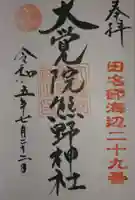 奉拝
田名部海辺二十九番
大覚院熊野神社
令和五年七月二十二日